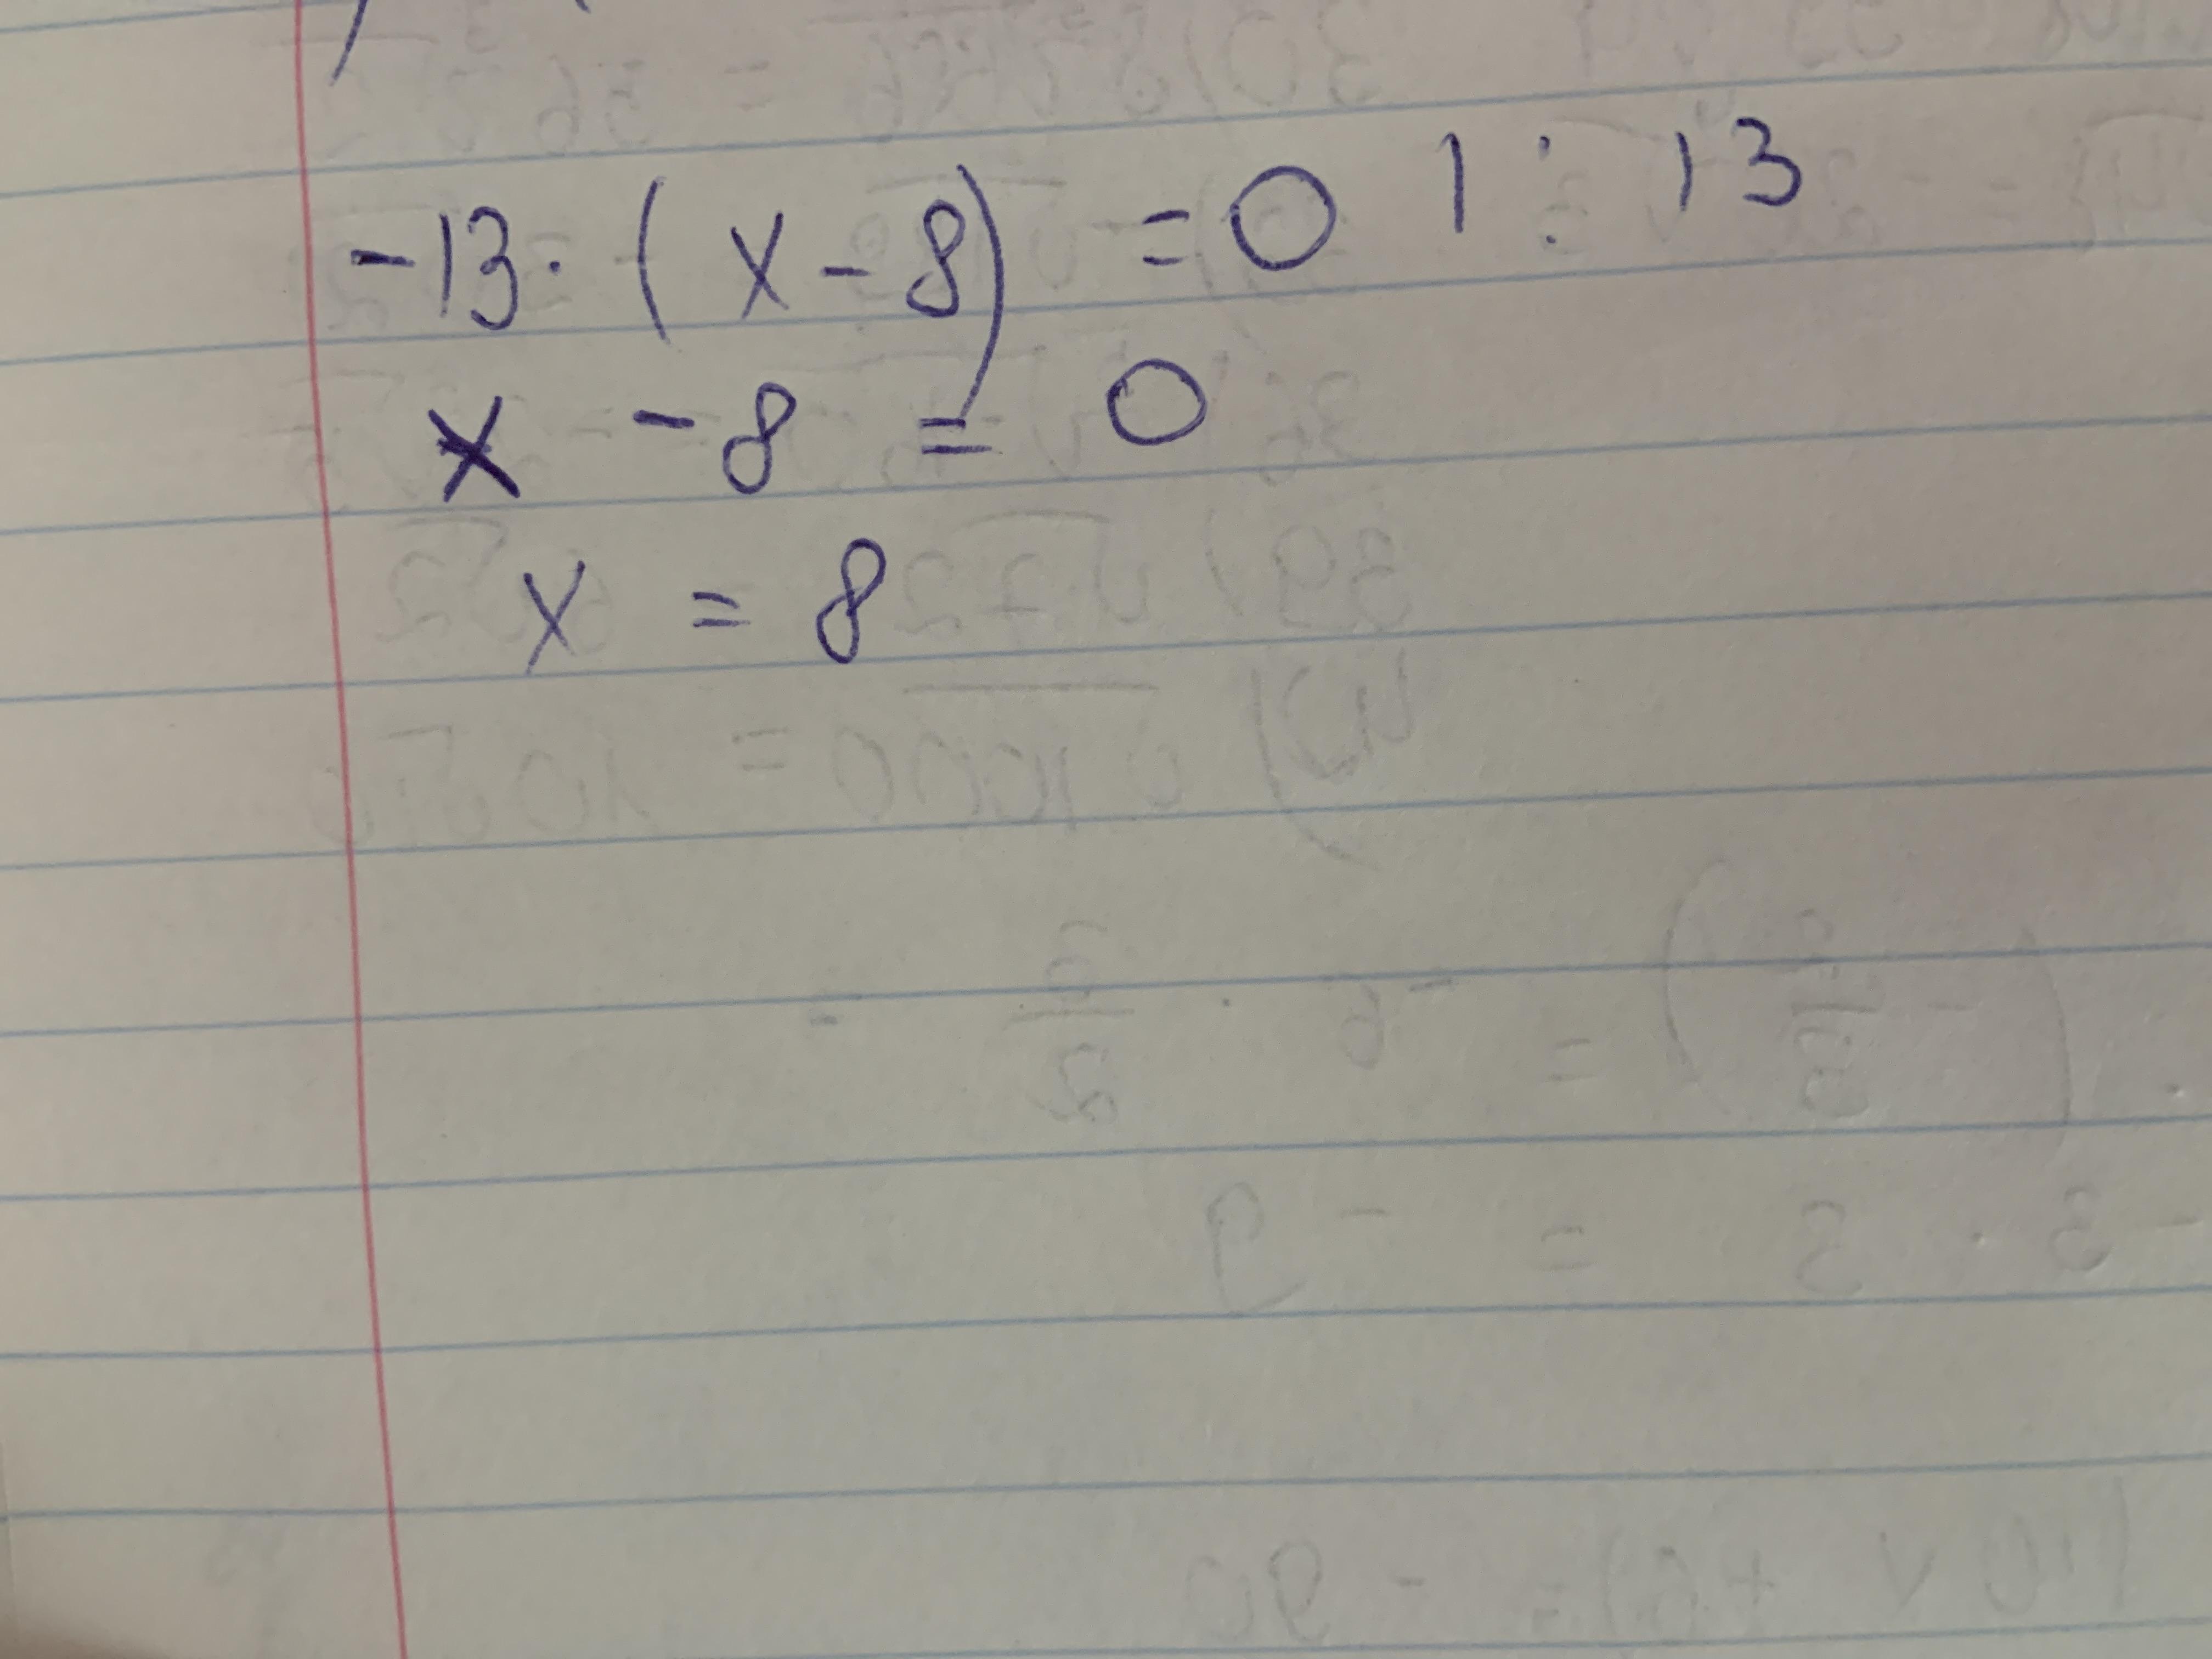 -13 · (x - 8) = 0 | : 13
x - 8 = 0
x = 8